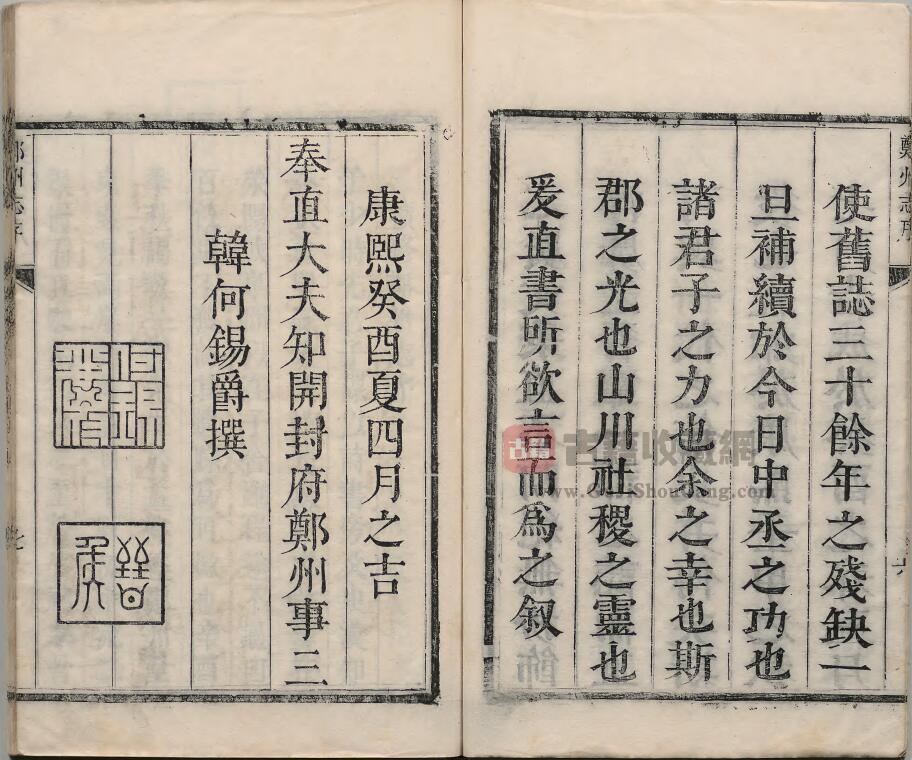 鄭州志序
使舊誌三十餘年之殘缺一
旦補續於今日中丞之功也
諸君子之力也余之幸也斯
郡之光也山川社稷之靈也
爰直書所欲言而爲之叙
六
康熙癸酉夏四月之吉
奉直大夫知開封府鄭州事三
韓何錫爵撰
鄭州志序
七
古籍
古籍收藏網
www.GuJiShouCang.com